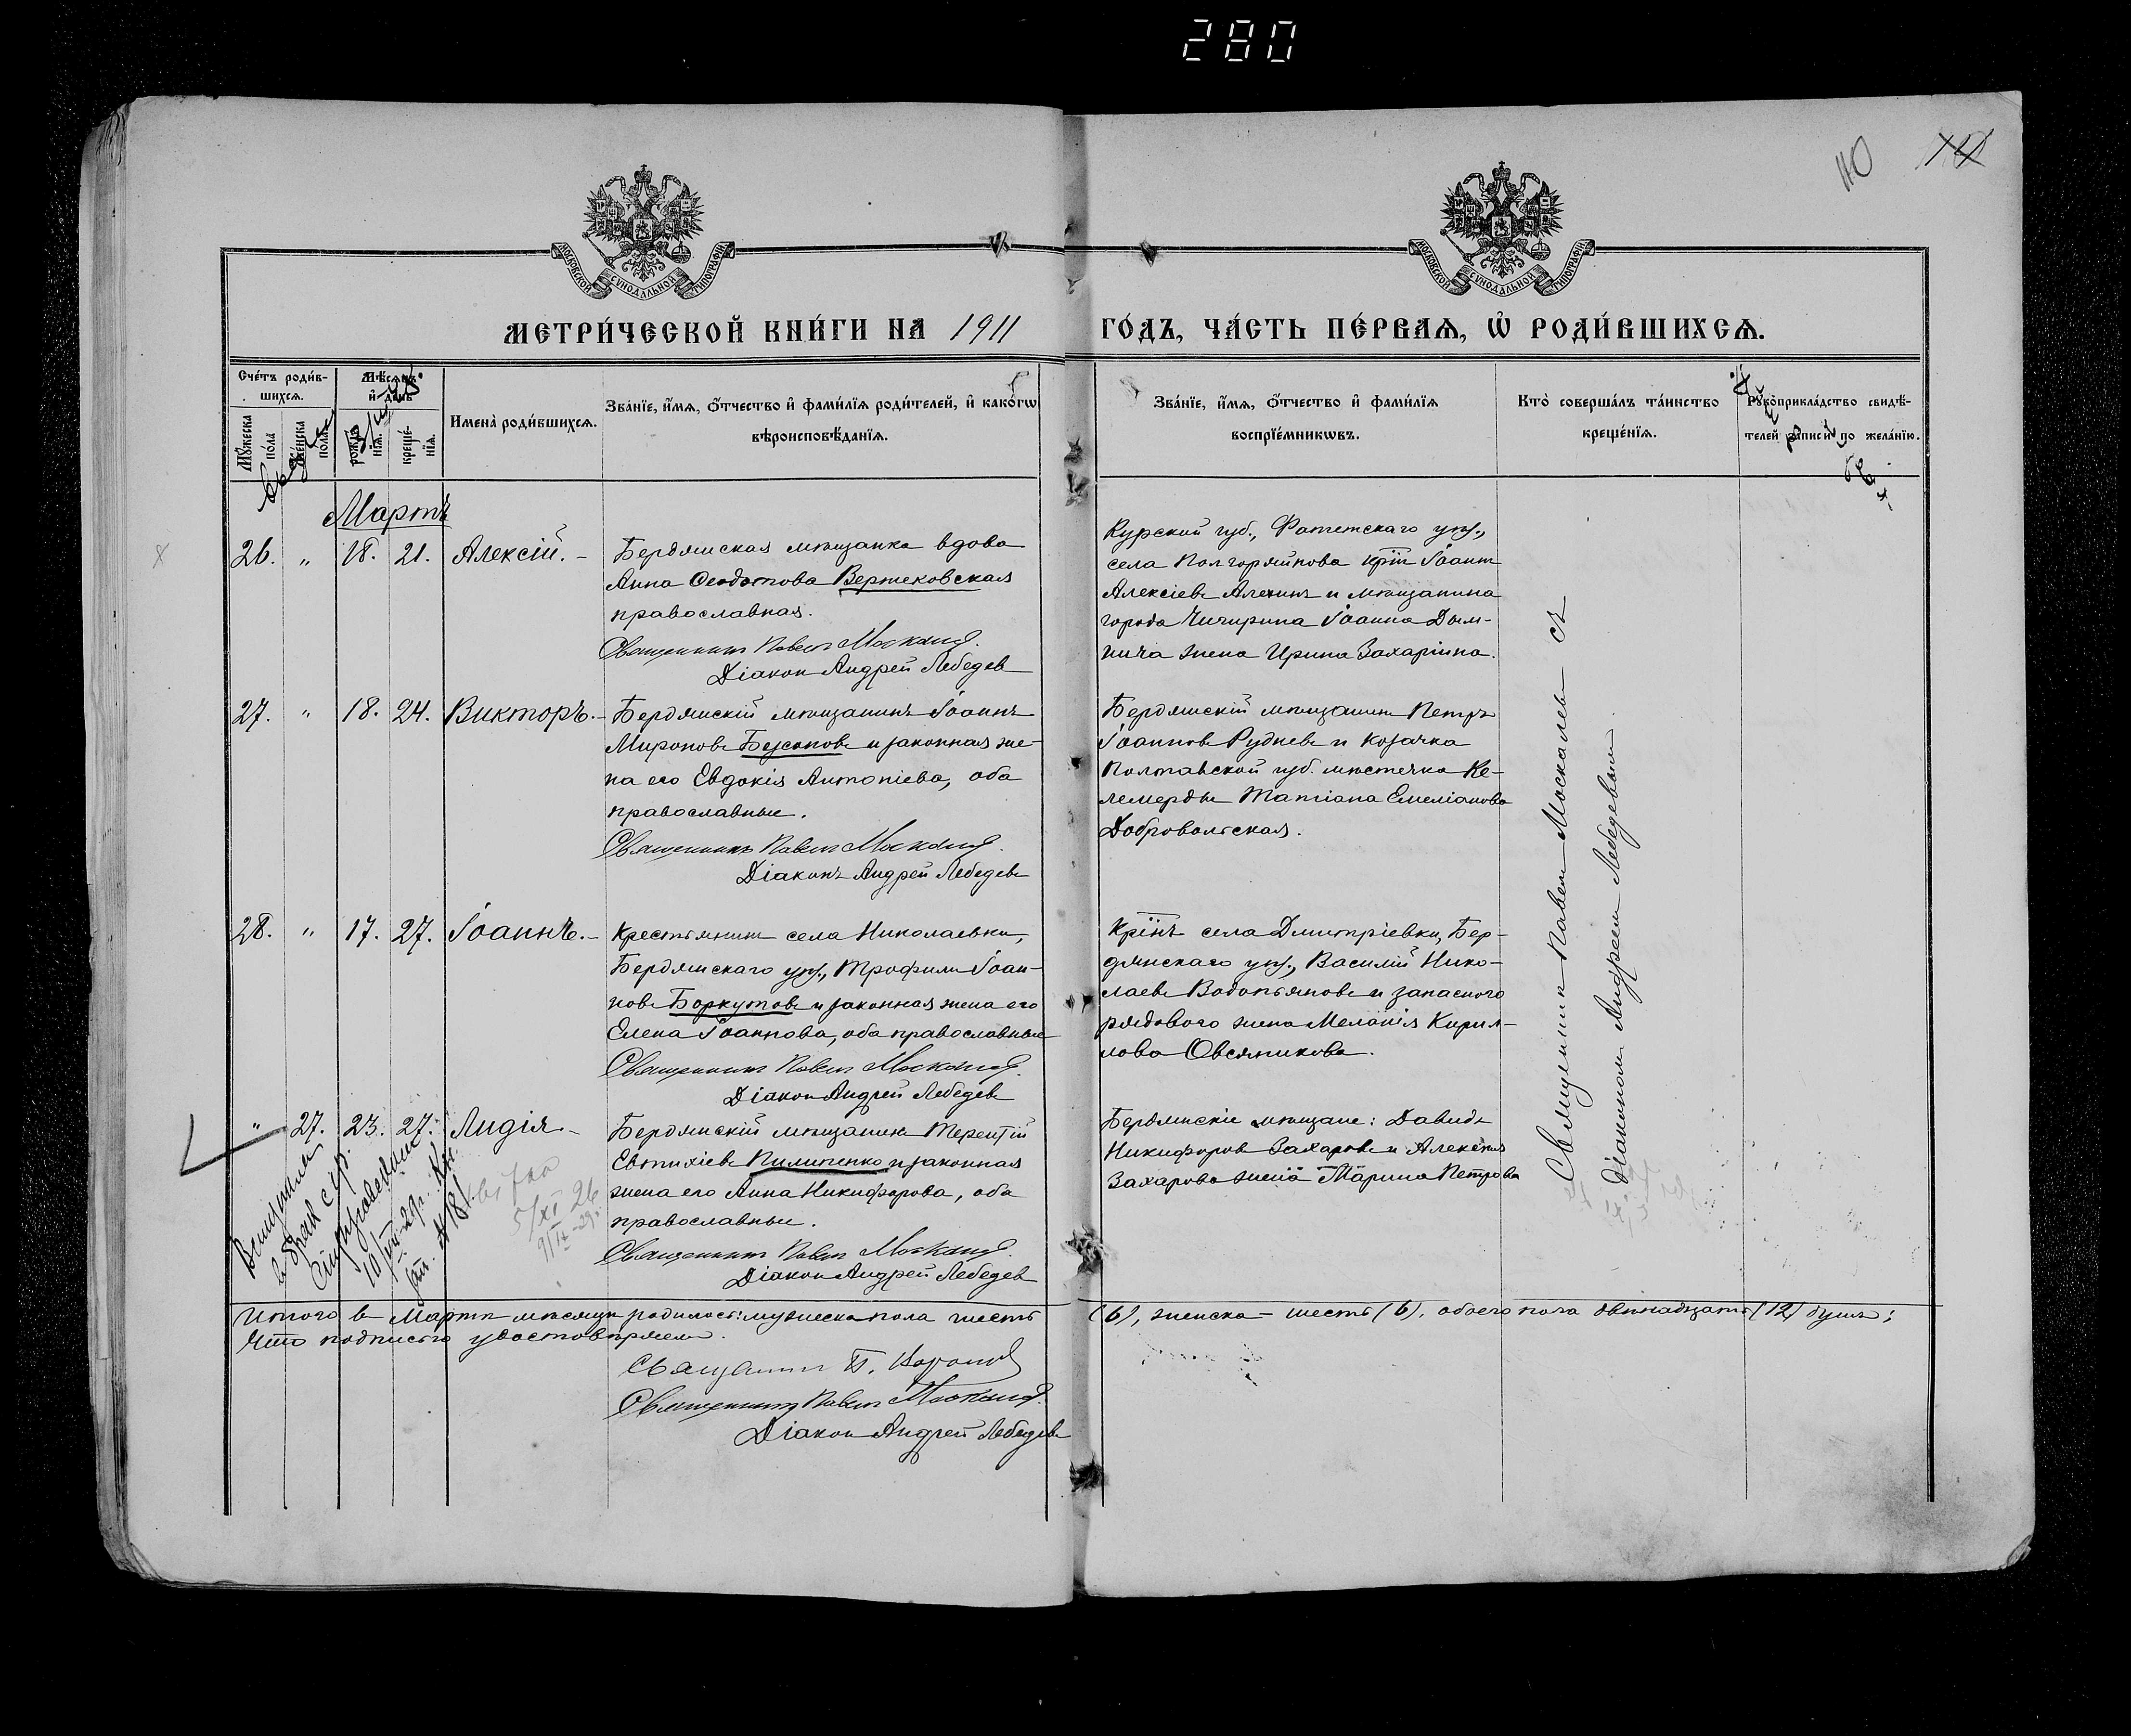 280
110
МОСКОВСКОЙ СѴНОДАЛЬНОЙ ТИПОГРАФІИ
МОСКОВСКОЙ СѴНОДАЛЬНОЙ ТИПОГРАФІИ
МЕТРИ́ЧЕСКОЙ КНИ́ГИ НА 1911
ГО́ДЪ, ЧА́СТЬ ПЕ́РВАѦ, Ѡ҆ РОДИ́ВШИХСѦ.
Сче́тъ роди́в-
шихсѧ.
Мꙋ́жеска по́ла
Же́нска по́ла
Мѣ́сѧцъ и҆ де́нь
рожде́нїѧ.
креще́-
нїѧ.
Имена̀ роди́вшихсѧ.
Зва́нїе, и҆́мѧ, ѻ҆́тчество и҆ фами́лїѧ роди́телей, и҆ како́гѡ
вѣроисповѣ́данїѧ.
Зва́нїе, и҆́мѧ, ѻ҆́тчество и҆ фами́лїѧ
воспрїе́мникѡвъ.
Кто̀ соверша́лъ та́инство
креще́нїѧ.
Рꙋкоприкла́дство свидѣ́-
телей за́писи по жела́нїю.
Мартъ
26. " 18. 21. Алексій. -
Бердянская мѣщанка вдова
Анна Ѳеодотова Вертековская
православная.
Священникъ Павелъ Москалев
Діакон Андрей Лебедев
Курской губ., Фатежскаго уѣз.,
села
Алексіевъ Алехинъ и мѣщанина
города Чигирина Іоанна Дым-
нича жена Ирина Захаріина.
27. " 18. 24. Викторъ. -
Бердянскій мѣщанинъ Іоаннъ
Мироновъ Безсоновъ и законная же-
на его Евдокія Антоніева, оба
православные.
Священникъ Павелъ Москалев
Діаконъ Андрей Лебедевъ
Бердянскій мѣщанинъ Петръ
Іоанновъ Рудневъ и козачка
Полтавской губ. мѣстечка Ке-
лемерды Татіана Емеліанова
Добровольская.
28. " 17. 27. Іоаннъ. -
Крестьянинъ села Николаевки,
Бердянскаго уѣз., Трофимъ Іоан-
новъ Боркутовъ и законная жена его
Елена Іоаннова, оба православные
Священникъ Павелъ Москалев
Діаконъ Андрей Лебедевъ
Кр̅інъ села Дмитріевки, Бер-
дянскаго уѣз., Василій Нико-
лаевъ Водопьяновъ и запаснаго
рядового жена Меланія Кирил-
лова Овсяникова.
" 27. 23. 27. Лидія. -
Бердянскій мѣщанинъ Терентій
Евтихіевъ Пилипенко и законная
жена его Анна Никифорова, оба
православные.
Священникъ Павелъ Москалев
Діаконъ Андрей Лебедев
Бердянскіе мѣщане: Давидъ
Никифоровъ Захаровъ и Алексѣя
Захарова жена Марина Петрова
Вступила
в брак с гр.
5/XI 26
9/IX-29.
Священник Павелъ Москалевъ съ
діакономъ Андреемъ Лебедевымъ.
Итого въ Мартѣ мѣсяцѣ родилось: мужеска пола шесть
(6), женска - шесть (6), обоего пола двѣнадцать (12) душъ;
Что подписью удостовѣряемъ.
Священникъ П.
Священникъ Павелъ Москалев
Діаконъ Андрей Лебедевъ